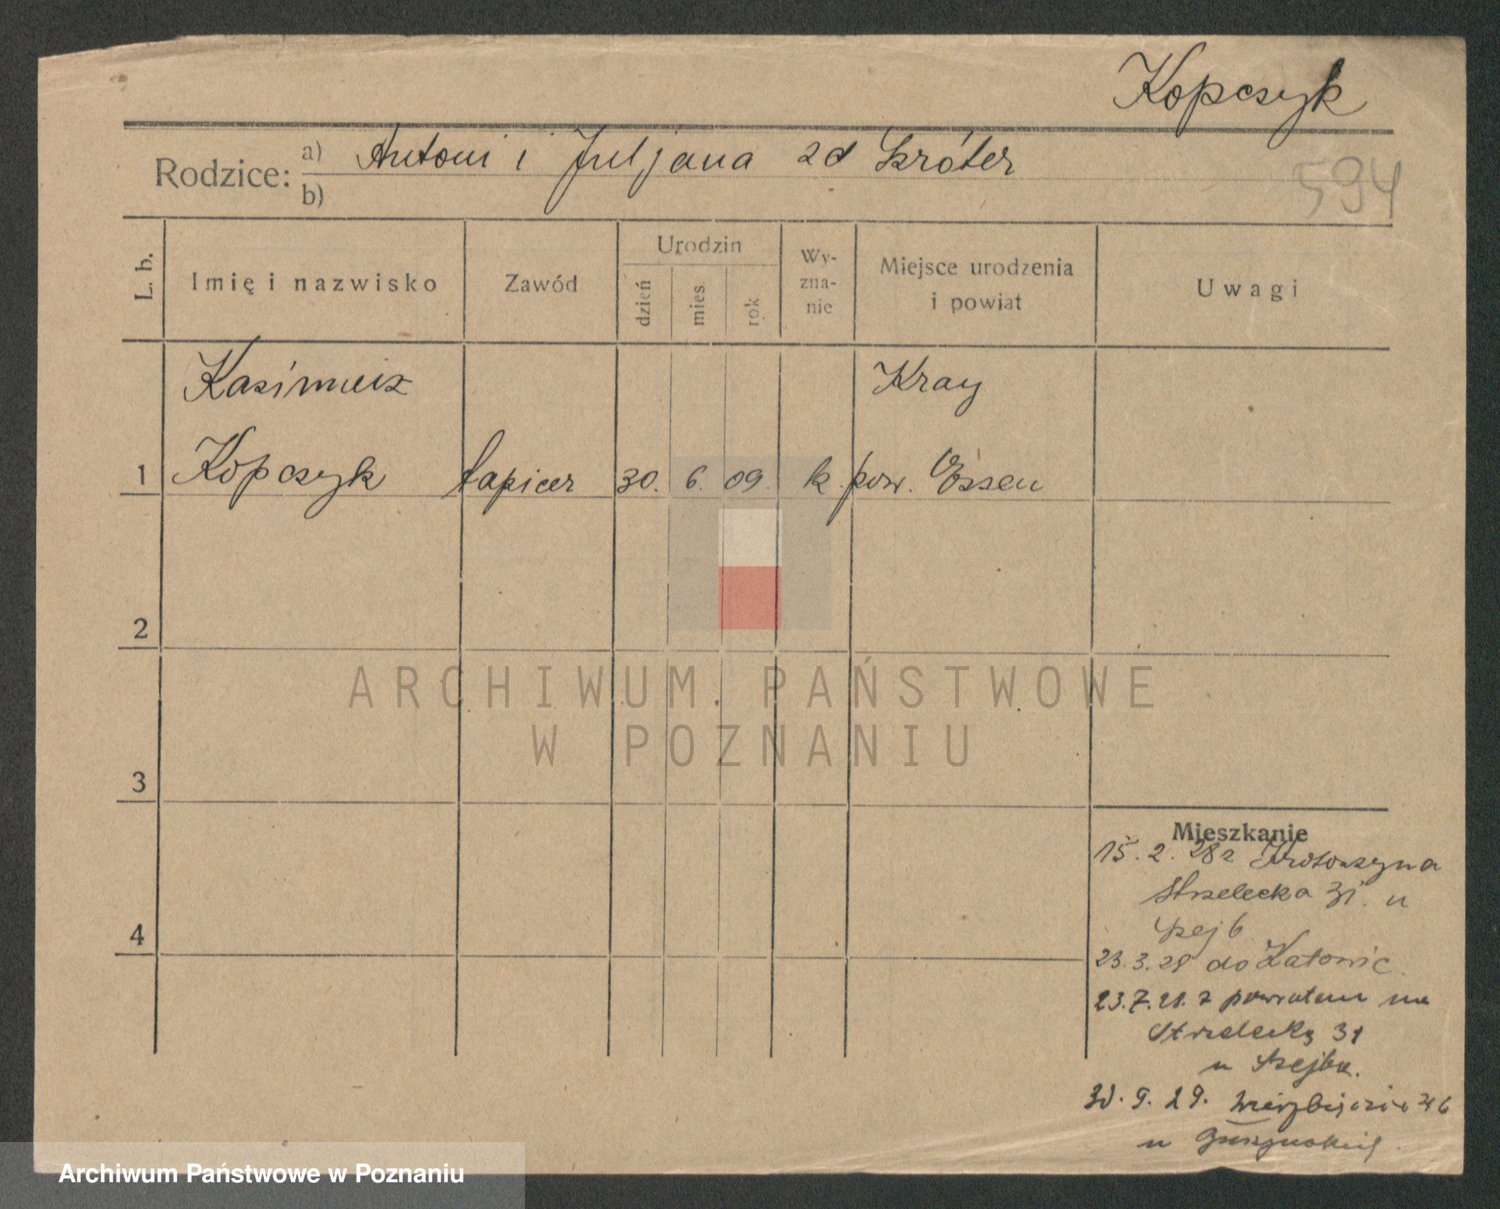 Kopczyk
Rodzice: a) Antoni i Juljana zd Szróter
b)
594
L. b.
Imię i nazwisko
Zawód
Urodzin
dzień
mies.
rok
Wy-
zna-
nie
Miejsce urodzenia
i powiat
Uwagi
Kazimierz
Kray
1 Kopczyk tapicer 30. 6. 09 k. pow. Essen
2
ARCHIWUM PAŃSTWOWE
W POZNANIU
3
Mieszkanie
15. 2. 28 z Krotoszyna
Strzelecka 31. u
4
23.3.28 do Katowic
23.7.28. z powrotem na
Strzelecką 31
u
30. 9. 29.
u
Archiwum Państwowe w Poznaniu